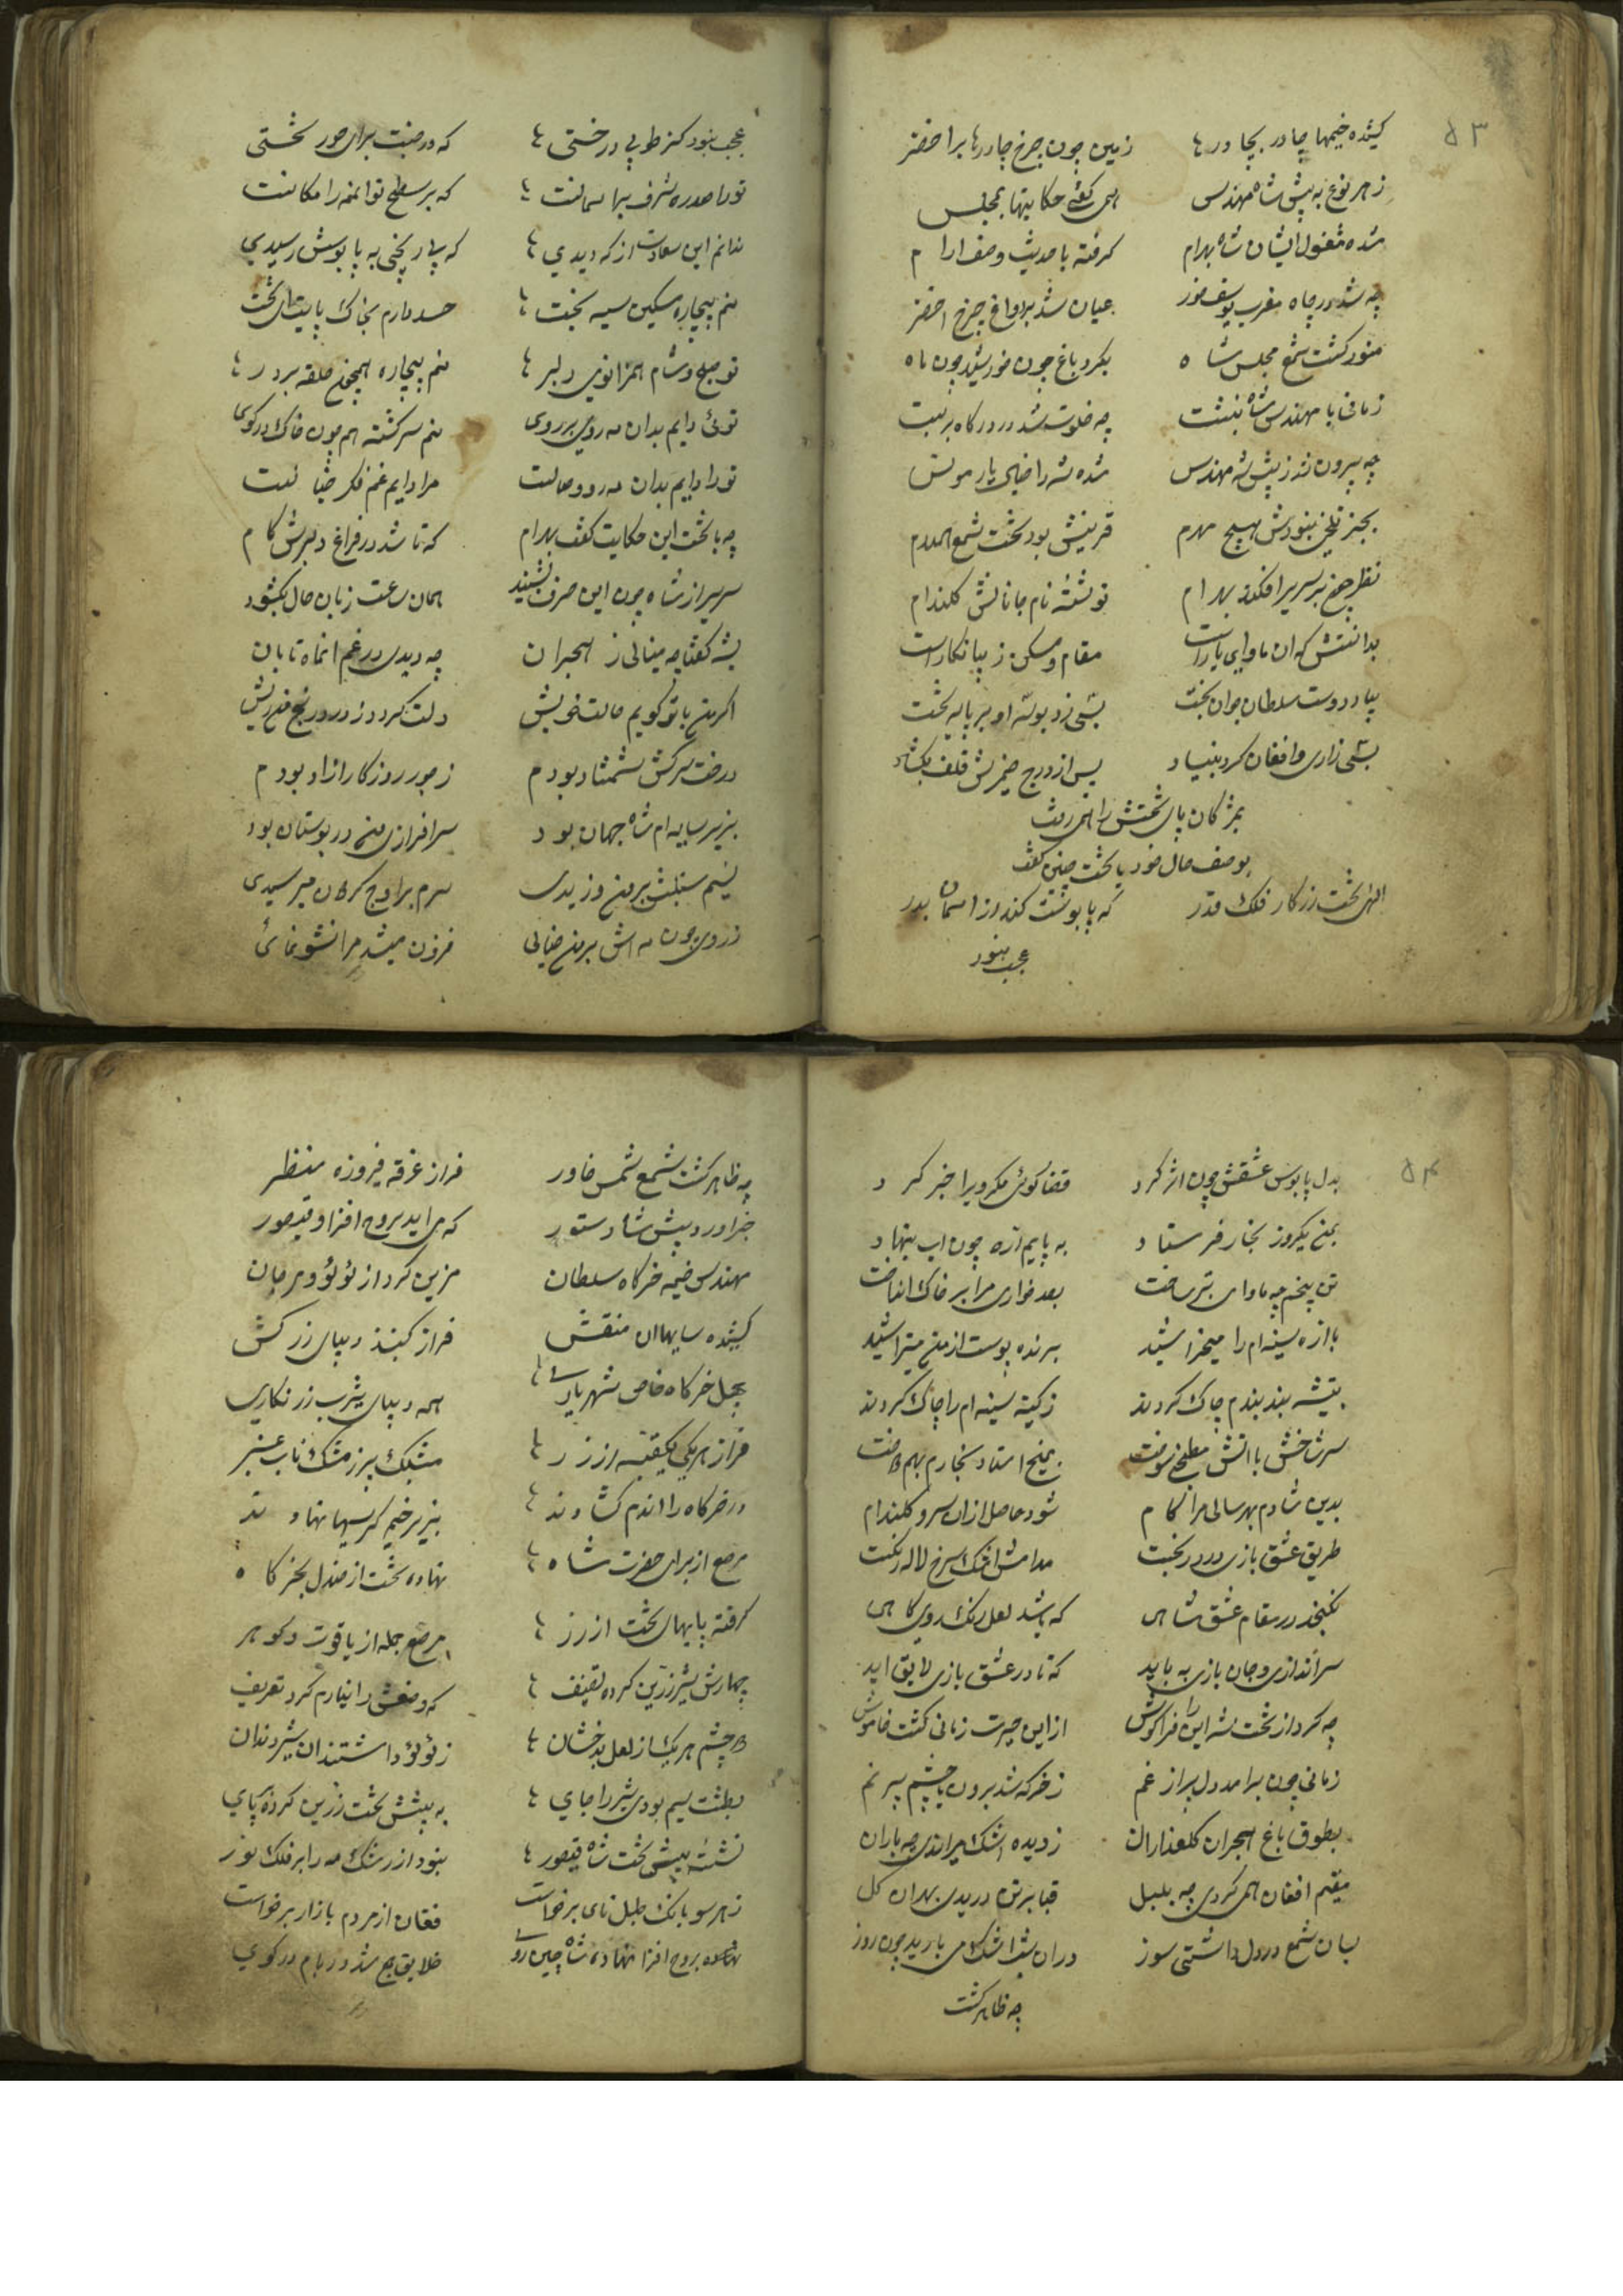 ۵۳
کشیده خیمها چادر بچادرها زمین چون چرخ چادرها برا خضر
ز هر نوع به پیش شاه مهندس همی گفتی حکایتها بمجلس
شده مشغول ایشان شاه بهرام گرفته با حدیث وصف ارام
چه شد در چاه مغرب یوسف خور عیان شد بر رواق چرخ اخضر
منور گشت شمع مجلس شاه بگرد باغ چون خورشید چون ماه
زمانی با مهندس شاه بنشست چه خلوت شد در درگاه بربست
چه بیرون شد ز پیش شه مهندس شده شه را خیال یار مونس
بجز تلخی نبودش هیچ مرهم قرینش بود تخت شمع همدم
نظر چون بر سریر افکند بهرام نوشته نام جانانش گلندام
بدانستش که ان ماوای یار است مقام و مسکن زیبا نگار است
بیاد دوست سلطان جوان بخت بسی زد بوسه او بر پایه تخت
بسی زاری و افغان کرد بنیاد پس از درج ضمیرش قلف بگشاد
بمژگان پای تختش را همی رفت
بوصف حال خود با تخت چنین گفت
الهی تخت زرکار فلک قدر که پابوست کند از اسمان بدر
عجب نبود
عجب نبود کنز طوبی درختی که در جنت برای حور تختی
تو را صدره شرف بر اسمانست که بر سطح تو انمه را مکانست
ندانم این سعادت از که دیدی که بی رنجی به پابوسش رسیدی
منم بیچاره مسکین سیه بخت حسد دارم بخاک پایت ای تخت
تو صبح و شام همزانوی دلبر منم بیچاره همچون حلقه بر در
توئی دایم بدان مه روی بر روی منم سرگشته هم چون خاک در کوی
تو را دایم بدان مه رو وصالست مرا دایم غم فکر خیالست
چه با تخت این حکایت گفت بهرام که تا شد در فراغ دلبرش کام
سریر از شاه چون این حرف بشنید همان ساعت زبان حال بگشود
بشه گفتا چه مینالی ز هجران چه دیدی در غم انماه تابان
اگر من با تو گویم حالت خویش دلت گردد ز درد رنج من ریش
درخت سرکش شمشاد بودم ز جور روزگار ازاد بودم
بزیر سایه ام شاه جهان بود سرافرازی من در بوستان بود
نسیم سنبلش بر من وزیدی سرم بر اوج گردان میرسیدی
ز روی چون مه اش بر من ضیائی فزون میشد مرا نشو نمائی
۵۴
بدل پابوس عشقش چون اثر کرد قضا گوئی مگر ویرا خبر کرد
بمن یکروز نجار فرستاد به پایم اره چون اب بنهاد
تن پیخم چه ماوای تبر ساخت بعد خواری مرا بر خاک انداخت
با اره سینه ام را میخراشید برنده پوست از من میتراشید
بتیشه بند بندم چاک کردند ز کینه سینه ام را چاک کردند
سرشاخش با اتش مطبخ سوخت بمیخ استاد نجارم بهم دوخت
بدین شادم بهر سالی مرا کام شود حاصل ازان سرو گلندام
طریق عشق بازی درد رنجست مدامش اشک سرخ لاله رنگست
نگنجد در مقام عشق شاهی که باشد لعل رنگ روی کاهی
سراندازی و جان بازی به باید که تا در عشق بازی لایق اید
چه کرد از تخت شه این را فراگوش از این حیرت زمانی گشت خاموش
زمانی چون برامد دل پر از غم ز خرگه شد برون با چشم پر نم
بطوق باغ هجران گلعذاران ز دیده اشک میراندی چه باران
مقیم افغان همی کردی چه بلبل قبا بر تن دریدی بهر ان گل
بسان شمع در دل داشتی سوز دران شب اشک می بارید چون روز
چه ظاهر گشت
چه ظاهر گشت شمع شمس خاور فراز غرفه فیروزه منظر
خبر اورد پیش شاه دستور که می اید بروح افزا و قیصور
مهندس خیمه خرگاه سلطان مزین کرد از لؤلؤ و مرجان
کشیده سایهاان منقش فراز گنبد دیبای زرکش
چهل خرگاه خاص شهریاری همه دیبای یثرب زرنگاری
فراز هر یکی یکقبه از زر مشبک پر ز مشک ناب عنبر
در خرگاه را اندم گشادند بزیر خیم کرسیها نهادند
مرصع از برای حضرت شاه نهاده تخت از صندل بخرگاه
گرفته پایهای تخت از زر مرصع جمله از یاقوت و گوهر
چهارش شیر زرین کرده تضیف که وصفش را نیارم کرد تعریف
دو چشم هر یک از لعل بدخشان ز لؤلؤ داشتند ان شیر دندان
بطشت سیم بودی شیر را جای به پیشش تخت زرین کرده بر پای
نشسته پیش تخت شاه قیصور نبود از رشک مه را بر فلک نور
ز هر سو بانک طبل نای برخواست فغان از مردم بازار برخواست
بروح افزا نهاده شاه چین روی خلایق جمع شد در بام در کوی